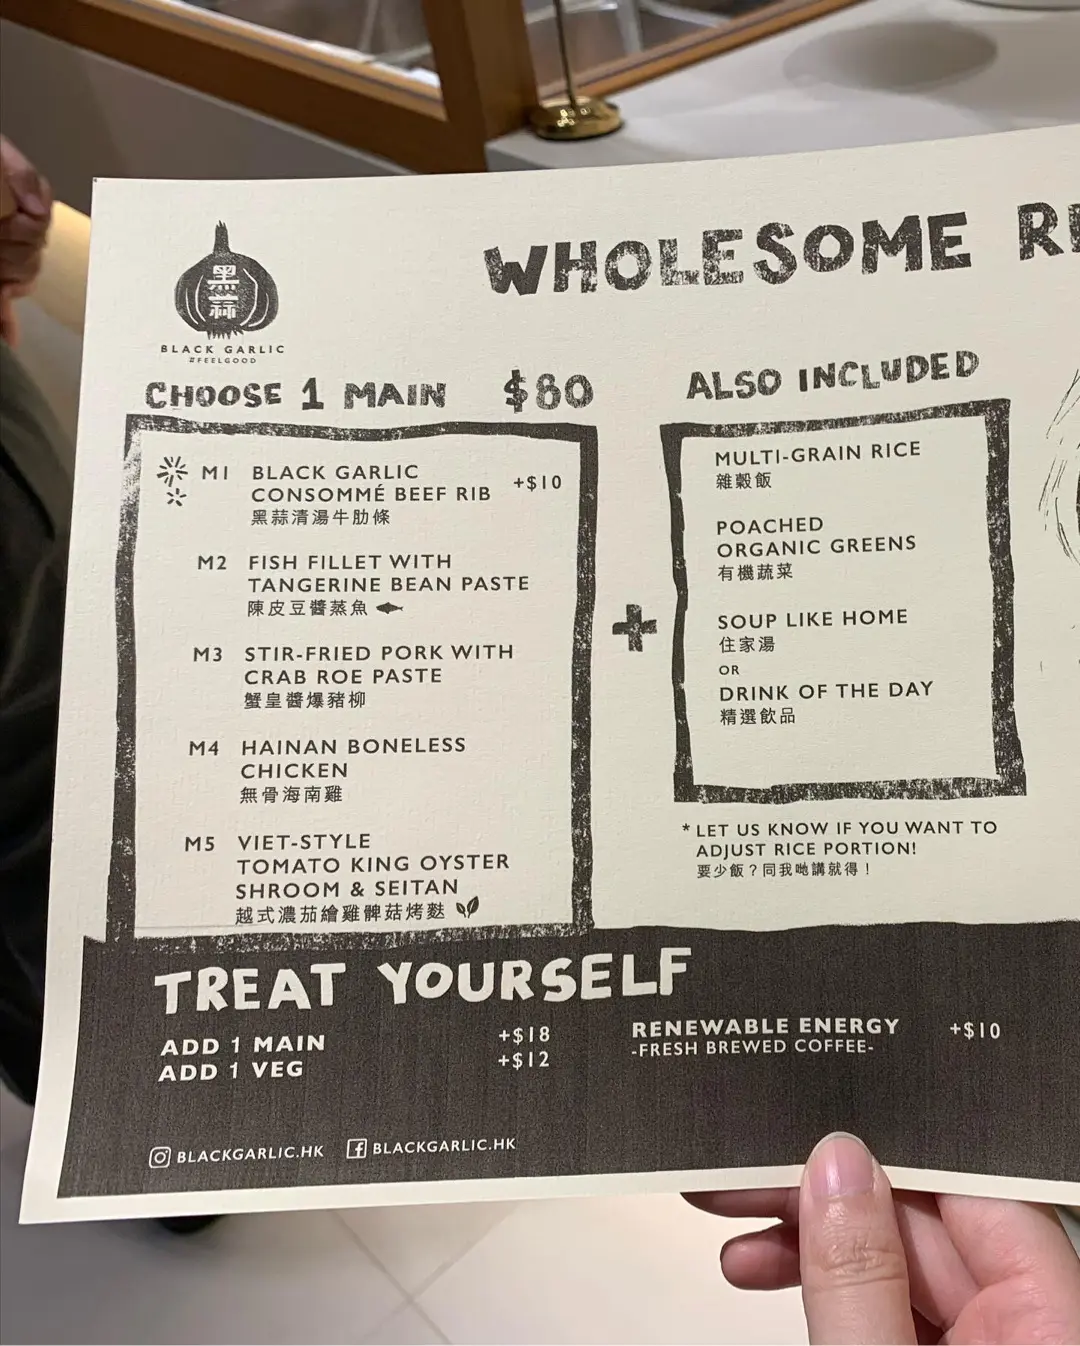 黑
蒜
BLACK GARLIC
#FEELGOOD
WHOLESOME
CHOOSE 1 MAIN $80
M1 BLACK GARLIC
CONSOMMÉ BEEF RIB +$10
黑蒜清湯牛肋條
M2 FISH FILLET WITH
TANGERINE BEAN PASTE
陳皮豆醬蒸魚
M3 STIR-FRIED PORK WITH
CRAB ROE PASTE
蟹皇醬爆豬柳
M4 HAINAN BONELESS
CHICKEN
無骨海南雞
M5 VIET-STYLE
TOMATO KING OYSTER
SHROOM & SEITAN
越式濃茄繪雞髀菇烤麩
+
ALSO INCLUDED
MULTI-GRAIN RICE
雜穀飯
POACHED
ORGANIC GREENS
有機蔬菜
SOUP LIKE HOME
住家湯
OR
DRINK OF THE DAY
精選飲品
* LET US KNOW IF YOU WANT TO
ADJUST RICE PORTION!
要少飯？同我哋講就得！
TREAT YOURSELF
ADD 1 MAIN +$18
ADD 1 VEG +$12
RENEWABLE ENERGY +$10
-FRESH BREWED COFFEE-
BLACKGARLIC.HK BLACKGARLIC.HK